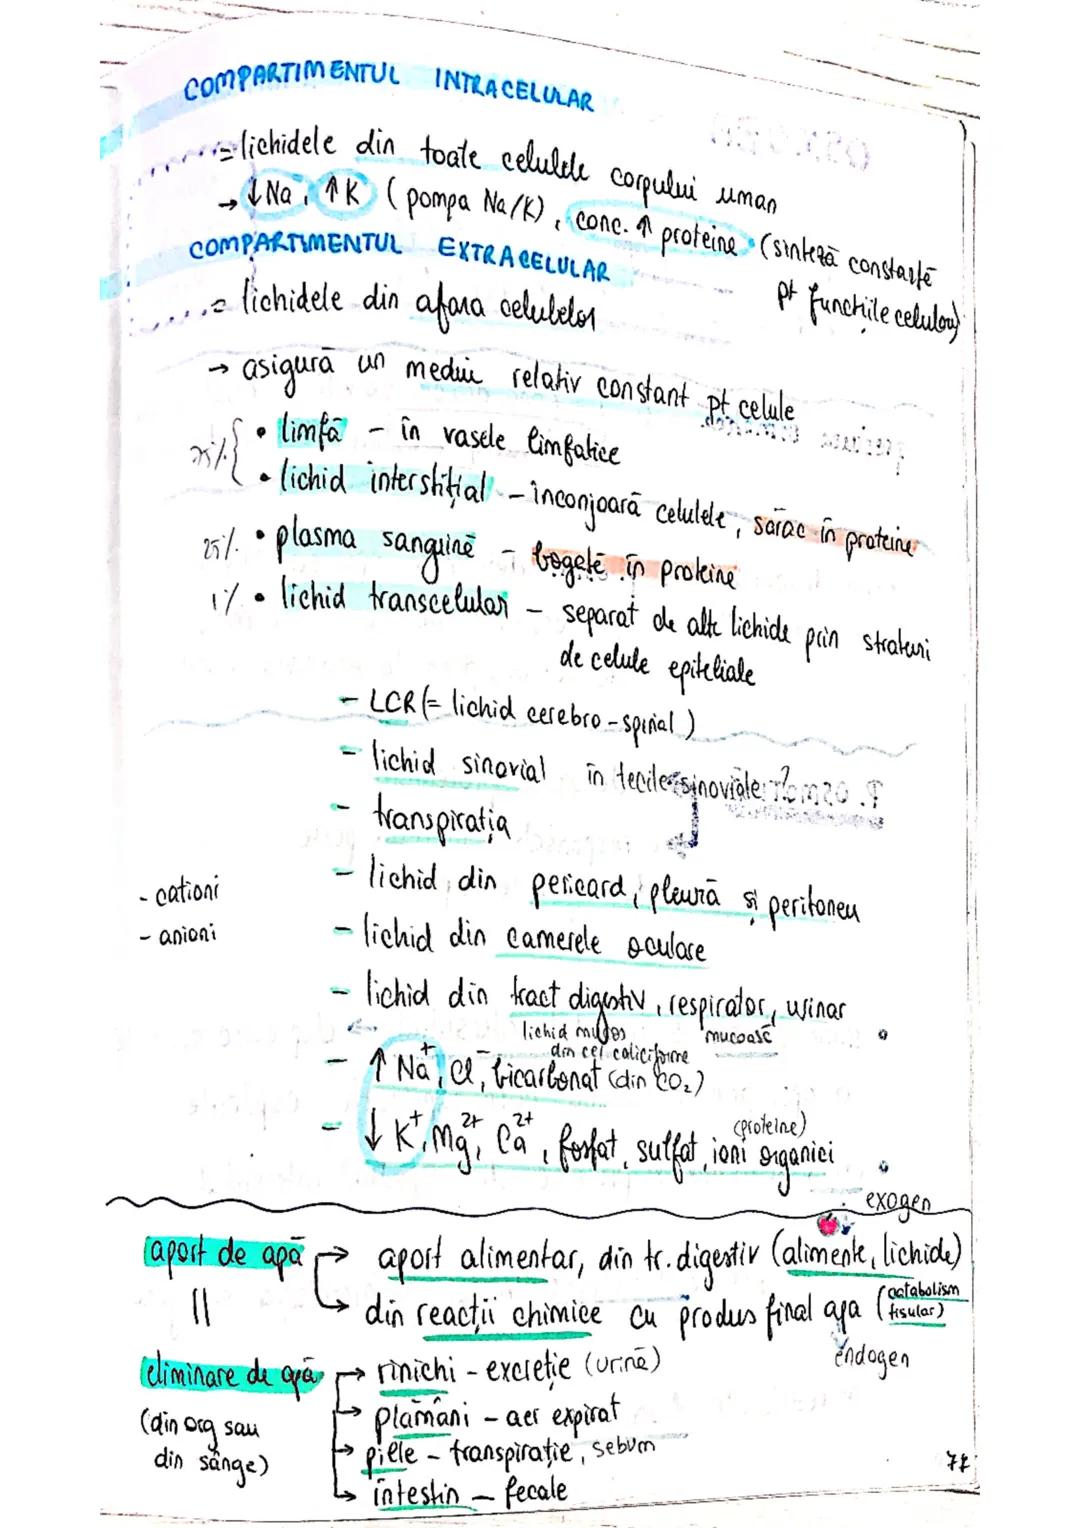 COMPARTIMENTUL INTRACELULAR
= lichidele din toate celulele corpului uman
→ ↓Na, ↑K (pompa Na/K), conc. ↑ proteine (sinteză constantă
pt funcțiile celulelor)
COMPARTIMENTUL EXTRACELULAR
= lichidele din afara celulelor
→ asigură un mediu relativ constant pt celule
• limfă - în vasele limfatice
• lichid interstițial - înconjoară celulele, sărac în proteine
25% • plasma sanguină - bogată în proteine
1% • lichid transcelular - separat de alte lichide prin straturi
de celule epiteliale
- LCR (= lichid cerebro-spinal)
- lichid sinovial în tecile sinoviale
- transpirația
- lichid din pericard, pleură și peritoneu
- cationi
- anioni
- lichid din camerele oculare
- lichid din tract digestiv, respirator, urinar
lichid mucos mucoasă
din cel caliciforme
- ↑ Na⁺, Cl⁻, bicarbonat (din CO₂)
(proteine)
- ↓ K⁺, Mg²⁺, Ca²⁺, fosfat, sulfat, ioni organici
exogen
aport de apă → aport alimentar, din tr. digestiv (alimente, lichide)
|| → din reacții chimice cu produs final apa (catabolism
tisular)
endogen
eliminare de apă → rinichi - excreție (urină)
(din org sau → plămâni - aer expirat
din sânge) → piele - transpirație, sebum
→ intestin - fecale
77